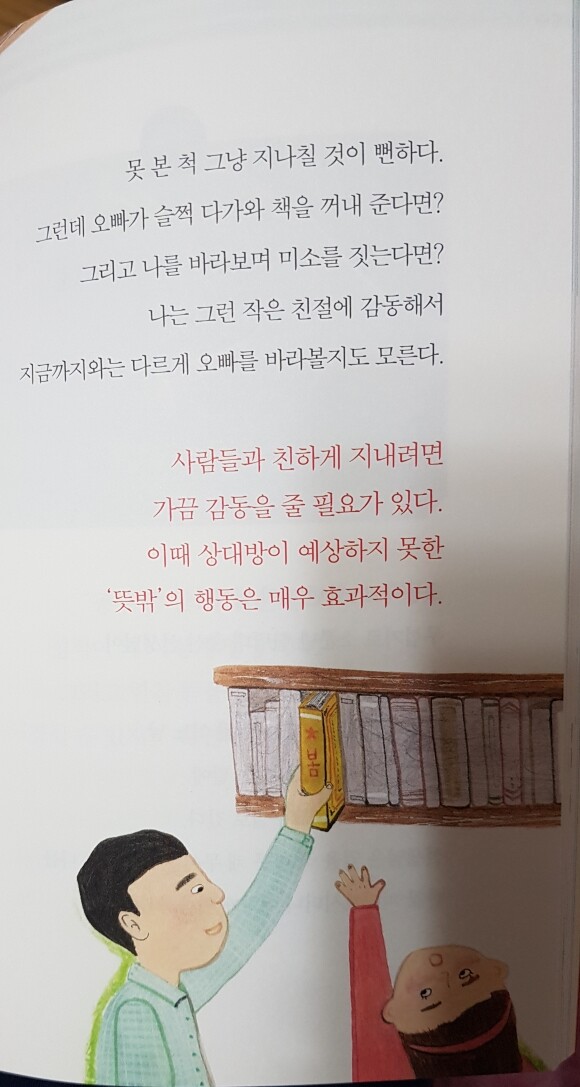 못 본 척 그냥 지나칠 것이 뻔하다.
그런데 오빠가 슬쩍 다가와 책을 꺼내 준다면?
그리고 나를 바라보며 미소를 짓는다면?
나는 그런 작은 친절에 감동해서
지금까지와는 다르게 오빠를 바라볼지도 모른다.
사람들과 친하게 지내려면
가끔 감동을 줄 필요가 있다.
이때 상대방이 예상하지 못한
‘뜻밖’의 행동은 매우 효과적이다.
봄